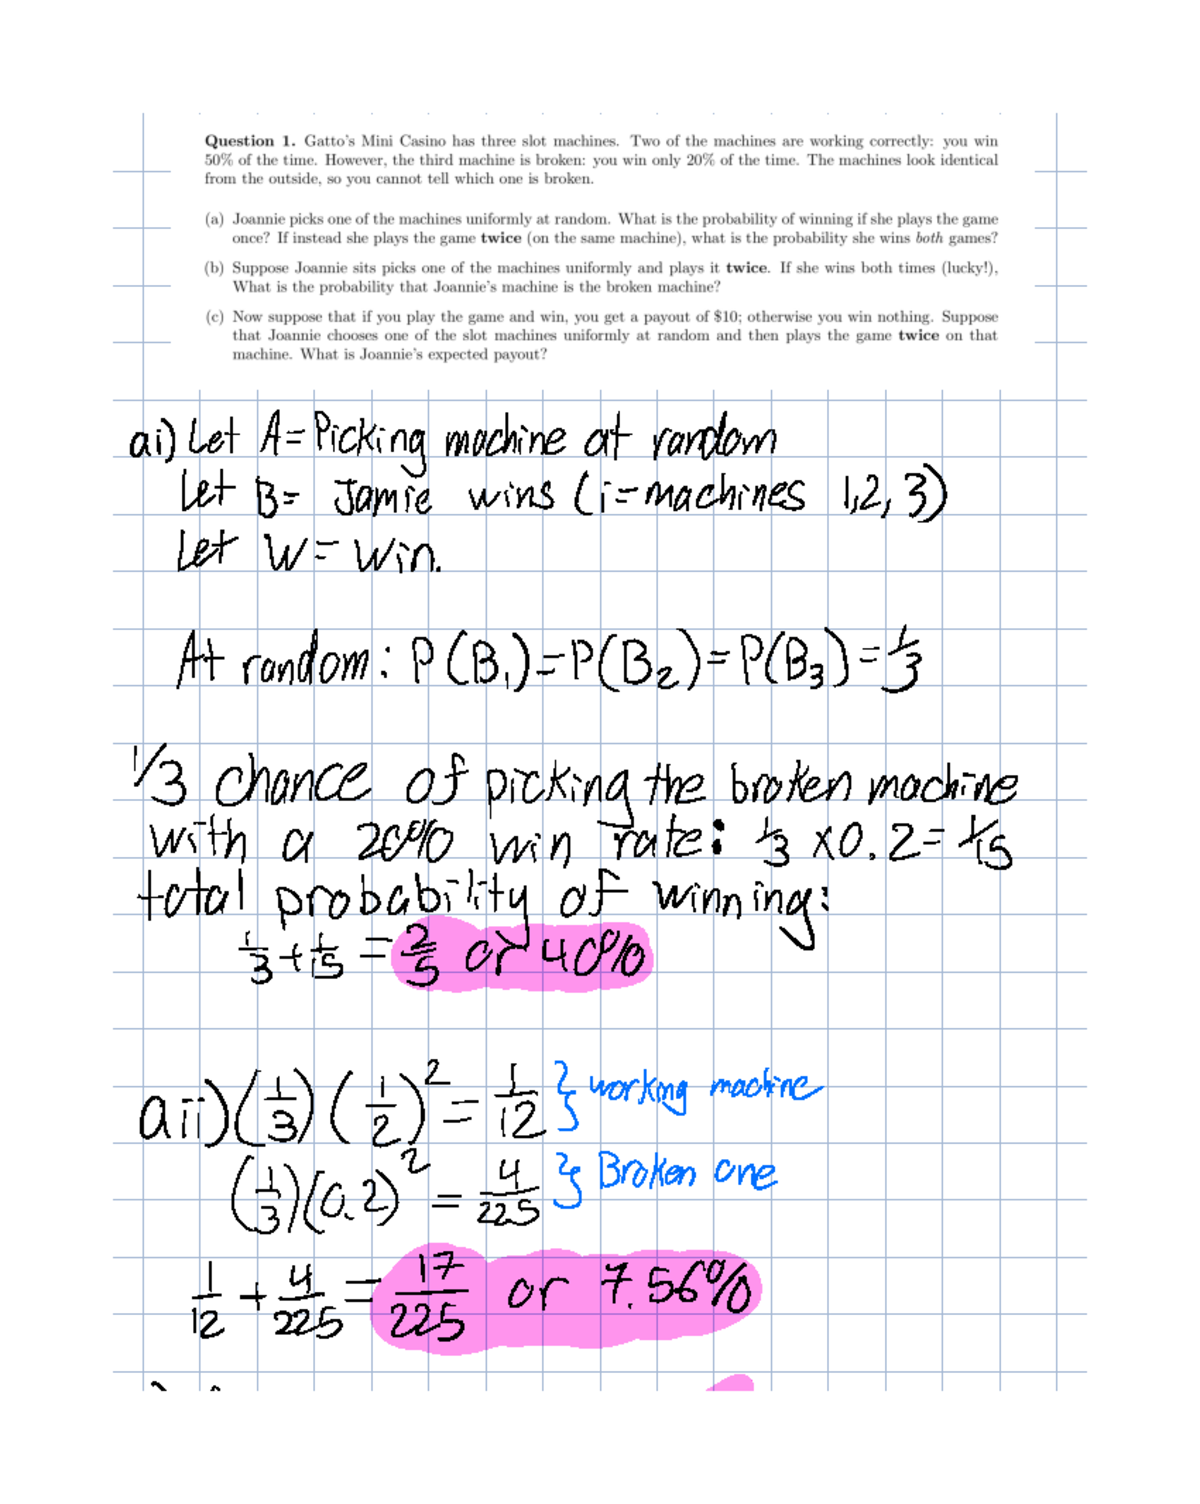 Question 1. Gatto's Mini Casino has three slot machines. Two of the machines are working correctly: you win
50% of the time. However, the third machine is broken: you win only 20% of the time. The machines look identical
from the outside, so you cannot tell which one is broken.
(a) Joannie picks one of the machines uniformly at random. What is the probability of winning if she plays the game
once? If instead she plays the game twice (on the same machine), what is the probability she wins both games?
(b) Suppose Joannie sits picks one of the machines uniformly and plays it twice. If she wins both times (lucky!),
What is the probability that Joannie's machine is the broken machine?
(c) Now suppose that if you play the game and win, you get a payout of $10; otherwise you win nothing. Suppose
that Joannie chooses one of the slot machines uniformly at random and then plays the game twice on that
machine. What is Joannie's expected payout?
ai) Let A = Picking machine at random
Let B = Jamie wins (i = machines 1,2,3)
Let W = Win.
At random: P(B₁) = P(B₂) = P(B₃) = 1/3
1/3 chance of picking the broken machine
with a 20% win rate: 1/3 x 0.2 = 1/15
total probability of winning:
1/3 + 1/15 = 2/5 or 40%
aii) (1/3) (1/2)² = 1/12 } working machine
(1/3)(0.2)² = 4/225 } Broken one
1/12 + 4/225 = 17/225 or 7.56%